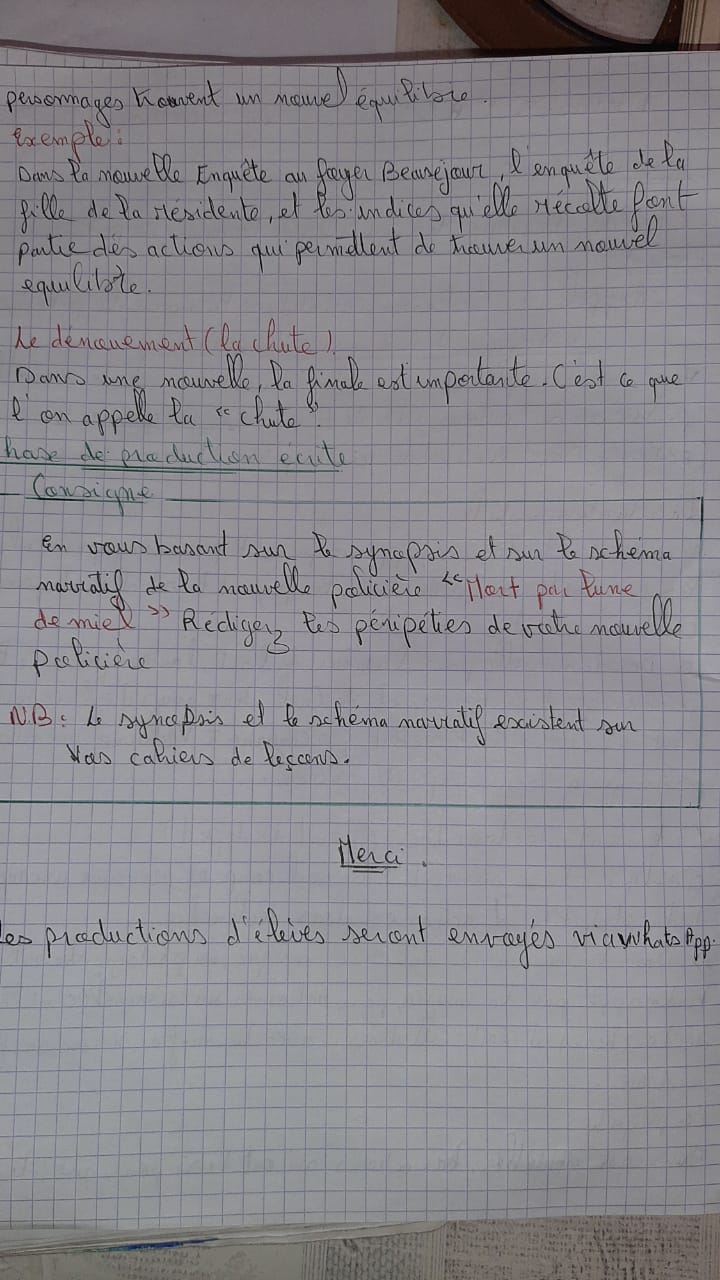 personnages trouvent un nouvel équilibre.
Exemple :
Dans la nouvelle Enquête au foyer Beauséjour, l'enquête de la
fille de la résidente, et les indices qu'elle récolte font
partie des actions qui permettent de trouver un nouvel
equilibre.
Le dénouement (la chute).
Dans une nouvelle, la finale est importante. C'est ce que
l'on appelle la "chute".
hase de production écrite
Consigne
En vous basant sur le synopsis et sur le schéma
narratif de la nouvelle policière "Mort par lune
de miel" Rédigez les péripéties de votre nouvelle
policière
N.B : Le synopsis et le schéma narratif existent sur
Vos cahiers de leçons.
Merci.
les productions d'élèves seront envoyés via whatsApp.